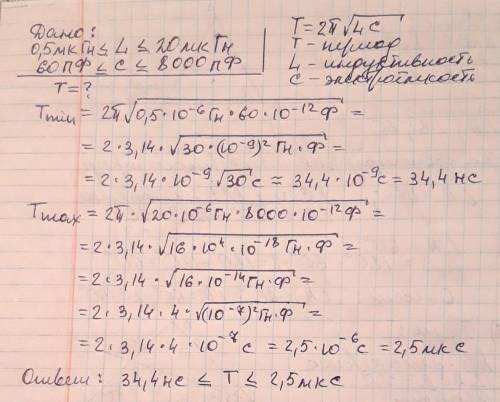 Дано:
0,5 мкГн ≤ L ≤ 20 мкГн
60 пФ ≤ C ≤ 8000 пФ
T = ?
T = 2π√LC
T - период
L - индуктивность
C - электроёмкость
Tmin = 2π√0,5·10⁻⁶Гн·60·10⁻¹²Ф =
= 2·3,14·√30·(10⁻⁹)²Гн·Ф =
= 2·3,14·10⁻⁹√30 с ≈ 34,4·10⁻⁹с = 34,4 нс
Tmax = 2π·√20·10⁻⁶Гн·8000·10⁻¹²Ф =
= 2·3,14·√16·10⁴·10⁻¹⁸Гн·Ф =
= 2·3,14·√16·10⁻¹⁴Гн·Ф =
= 2·3,14·4·√(10⁻⁷)²Гн·Ф =
= 2·3,14·4·10⁻⁷с = 2,5·10⁻⁶с = 2,5 мкс
Ответ: 34,4 нс ≤ T ≤ 2,5 мкс